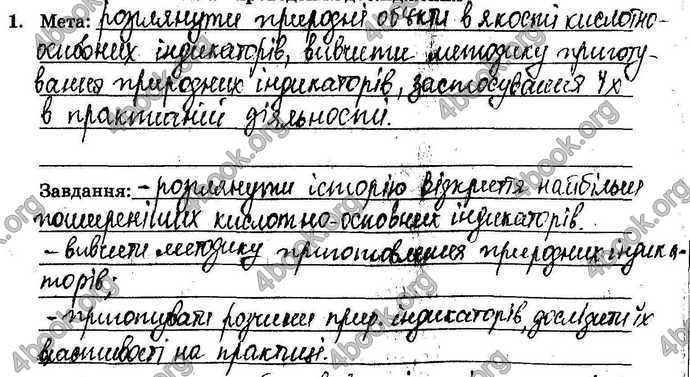 1. Мета: розглянути природні об'єкти в якості кислотно-
основних індикаторів, вивчити методику приготу-
вання природних індикаторів, застосування їх
в практичній діяльності.
Завдання: - розглянути історію відкриття найбільш
поширеніших кислотно-основних індикаторів.
- вивчити методику приготовлення природних індика-
торів;
- приготувати розчини прир. індикаторів, дослідити їх
властивості на практиці.
4book.org